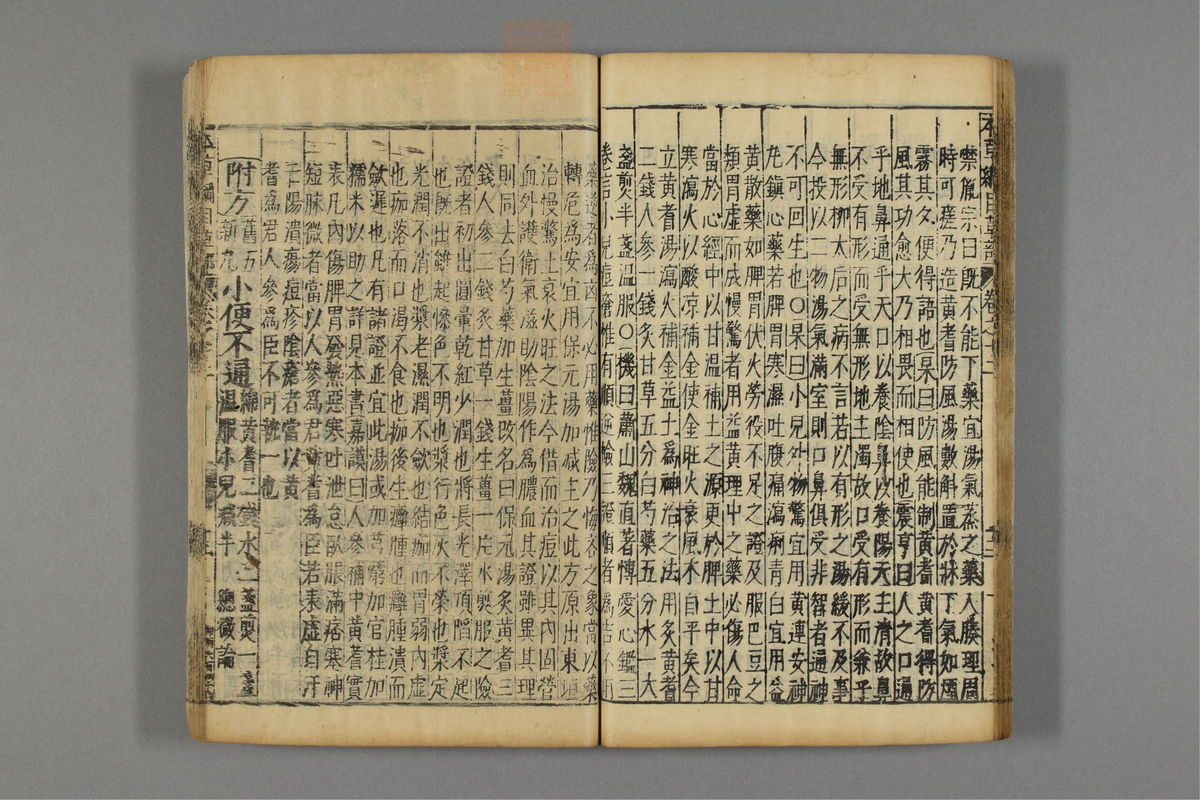 本草綱目草部 卷之十二
禁胤宗曰旣不能下藥宜湯氣蒸之藥入腠理周
時可瘥乃造黃耆防風湯數斛置於牀下氣如煙
霧其夕便得語也杲曰防風能制黃耆黃耆得防
風其功愈大乃相畏而相使也震亨曰人之口通
乎地鼻通乎天口以養陰鼻以養陽天主清故鼻
不受有形而受無形地主濁故口受有形而兼乎
無形柳太后之病不言若以有形之湯緩不及事
今投以二物湯氣滿室則口鼻俱受非智者通神
不可回生也○杲曰小兒外物驚宜用黃連安神
丸鎭心藥若脾胃寒濕吐腹痛瀉痢青白宜用益
黃散藥如脾胃伏火勞役不足之證及服巴豆之
類胃虛而成慢驚者用益黃理中之藥必傷人命
當於心經中以甘溫補土之源更於脾土中以甘
寒瀉火以酸凉補金使金旺火衰風木自平矣今
立黃耆湯瀉火補金益土爲神治之法用炙黃耆
二錢人參一錢炙甘草五分白芍藥五分水一大
盞煎半盞溫服○機曰蕭山魏直著博愛心鑑三
卷言小兒痘瘡惟有順逆險三證順者爲吉不用
藥逆者爲凶不必用藥惟險乃悔吝之象當以藥
轉危爲安宜用保元湯加減主之此方原出東垣
治慢驚土衰火旺之法今借而治痘以其內固營
血外護衛氣滋助陰陽作爲膿血其證雖異其理
則同去白芍藥加生薑改名曰保元湯炙黃耆三
錢人參二錢炙甘草一錢生薑一片水煎服之險
證者初出圓暈乾紅少潤也將長光澤頂陷不起
也旣出雖起慘色不明也漿行色灰不榮也漿定
光潤不消也漿老濕潤不斂也結痂而胃弱內虛
也痂落而口渴不食也痂後生癰腫也癰腫潰而
斂遲也凡有諸證並宜此湯或加芎藭加官桂加
糯米以助之詳見本書嘉謨曰人參補中黃耆實
表凡內傷脾胃發熱惡寒吐泄怠臥脹滿痞塞神
短脉微者當以人參爲君黃耆爲臣若表虛自汗
亡陽潰瘍痘疹陰瘡者當以黃
耆爲君人參爲臣不可執一也
附方 舊五 新九 小便不通 綿黃耆二錢水二盞煎一盞
溫服小兒減半總微論
本草綱目草部